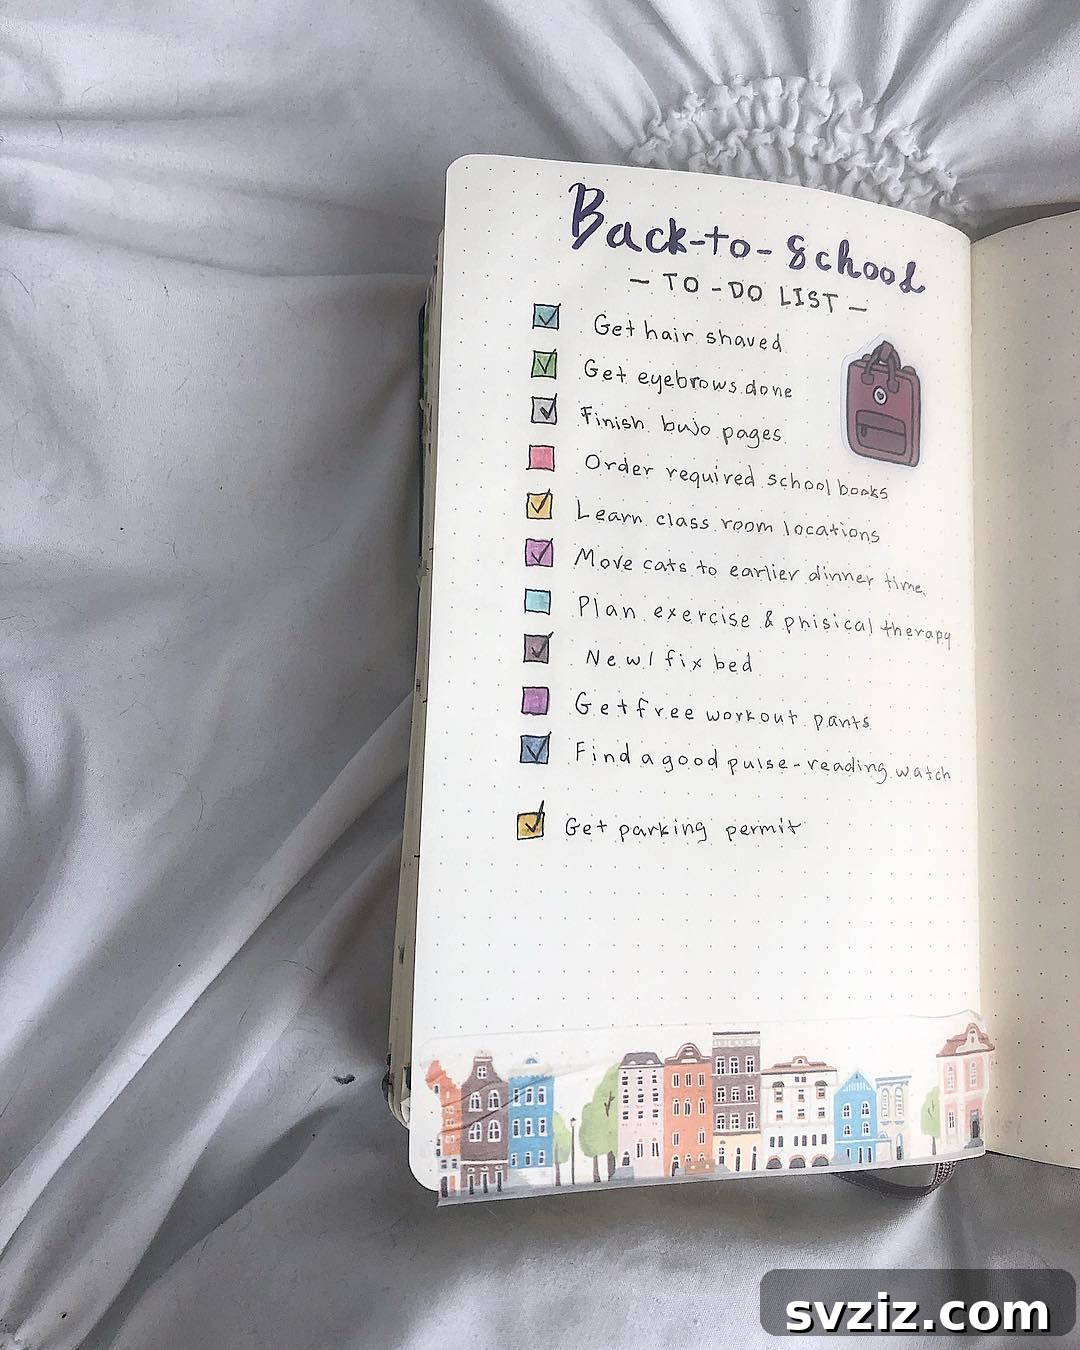 Back-to-School
- TO-DO LIST -
Get hair shaved
Get eyebrows done
Finish bujo pages
Order required school books
Learn class room locations
Move cats to earlier dinner time
Plan exercise & phisical therapy
New/fix bed
Get free workout pants
Find a good pulse-reading watch
Get parking permit
svziz.com